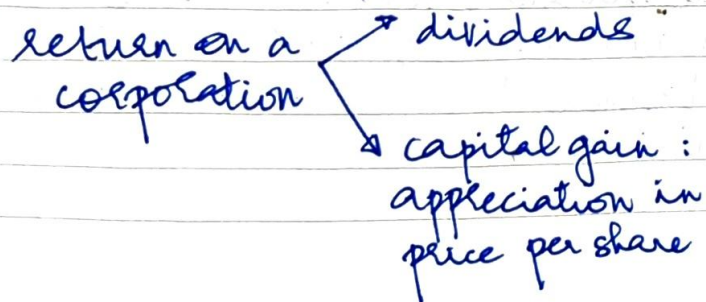 return on a
corporation
dividends
capital gain :
appreciation in
price per share